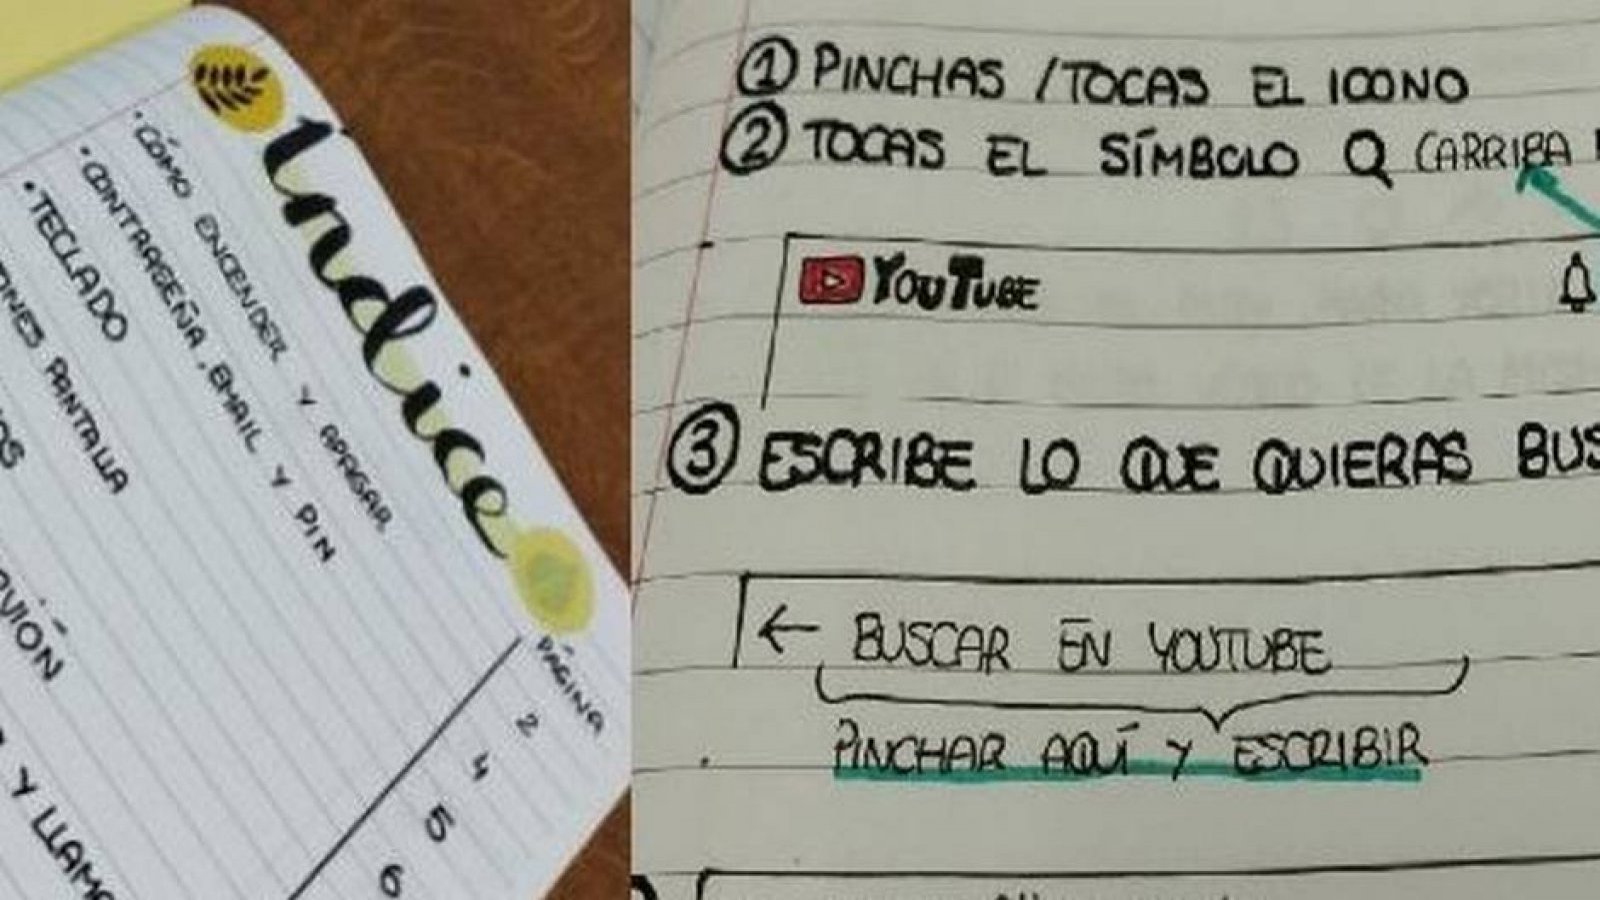 Índice
• CÓMO ENCENDER Y APAGAR
• CONTRASEÑA, EMAIL Y PIN
• TECLADO
PANTALLA
Y
PÁGINA
2
4
5
6
① PINCHAS / TOCAS EL ICONO
② TOCAS EL SÍMBOLO (ARRIBA
YOUTUBE
③ ESCRIBE LO QUE QUIERAS
← BUSCAR EN YOUTUBE
PINCHAR AQUÍ Y ESCRIBIR